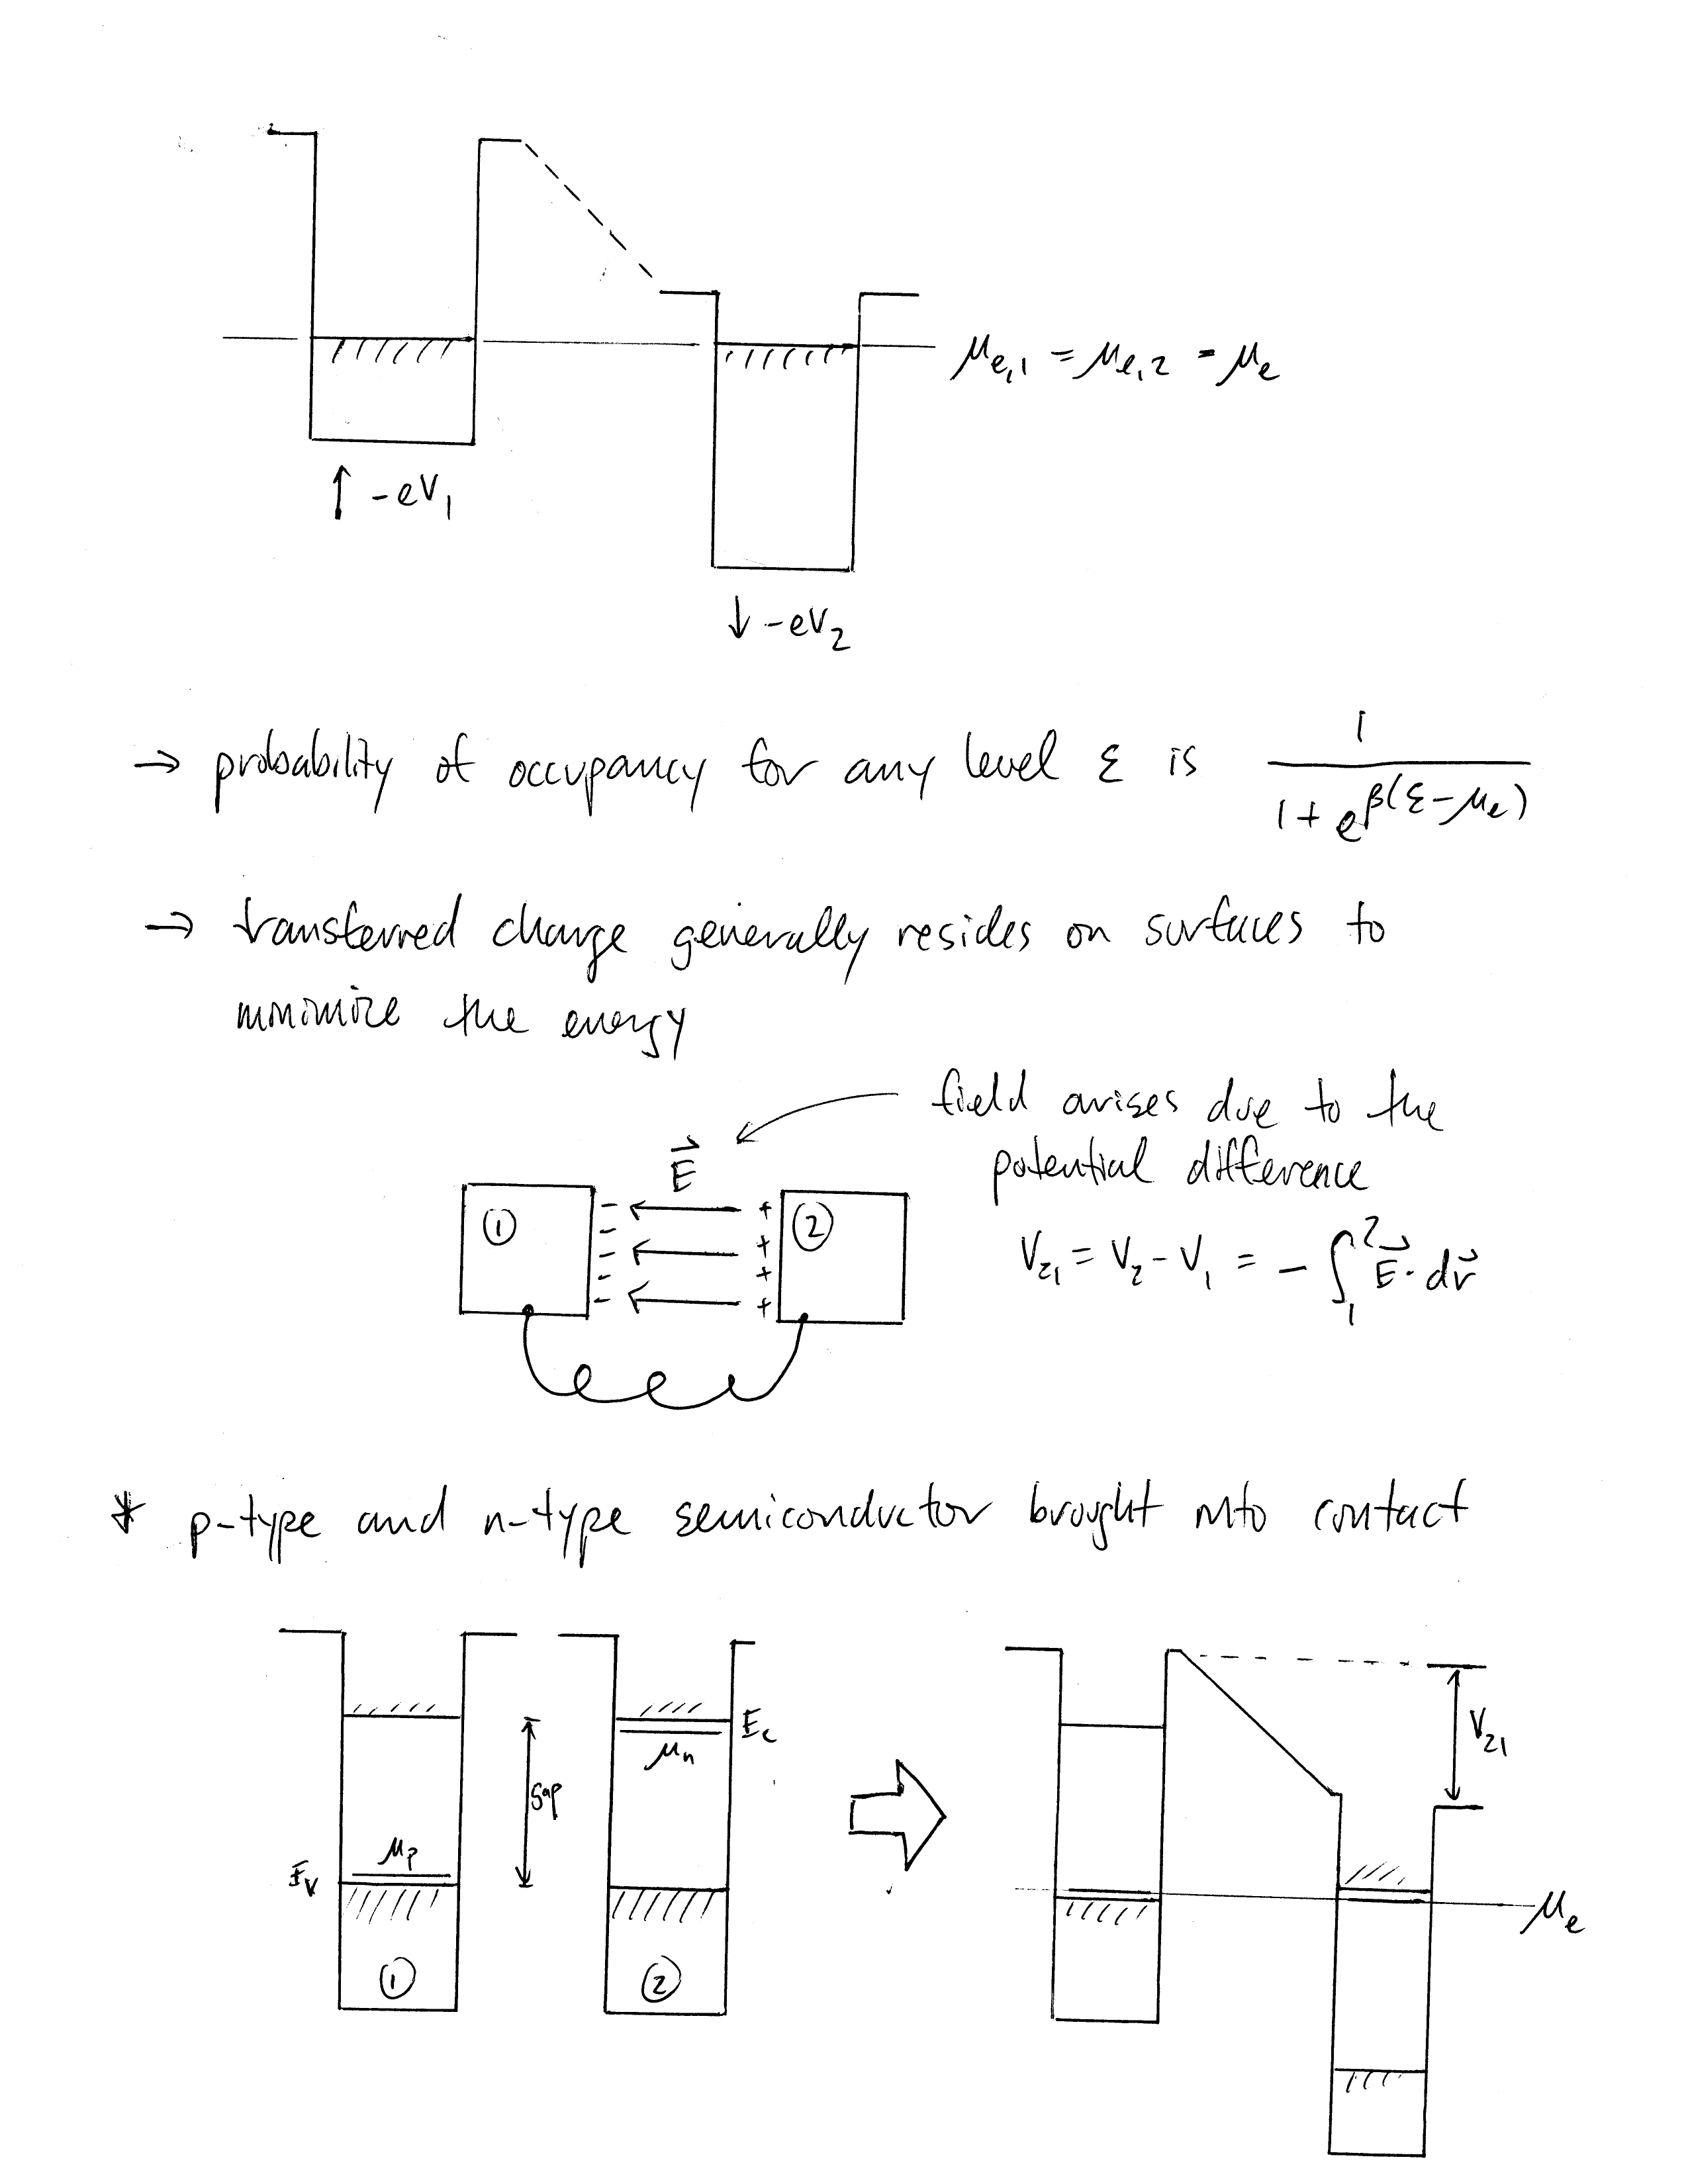 μe,1 = μe,2 = μe
↑ -eV1
↓ -eV2
→ probability of occupancy for any level ε is 1 / (1 + e^β(ε-μe))
→ transferred charge generally resides on surfaces to
minimize the energy
field arises due to the
potential difference
E⃗
① - - - - - + + + + ②
V21 = V2 - V1 = - ∫₁² E⃗ · dr⃗
* p-type and n-type semiconductor brought into contact
Ec
μn
V21
gap
μp
Ev
μe
① ②